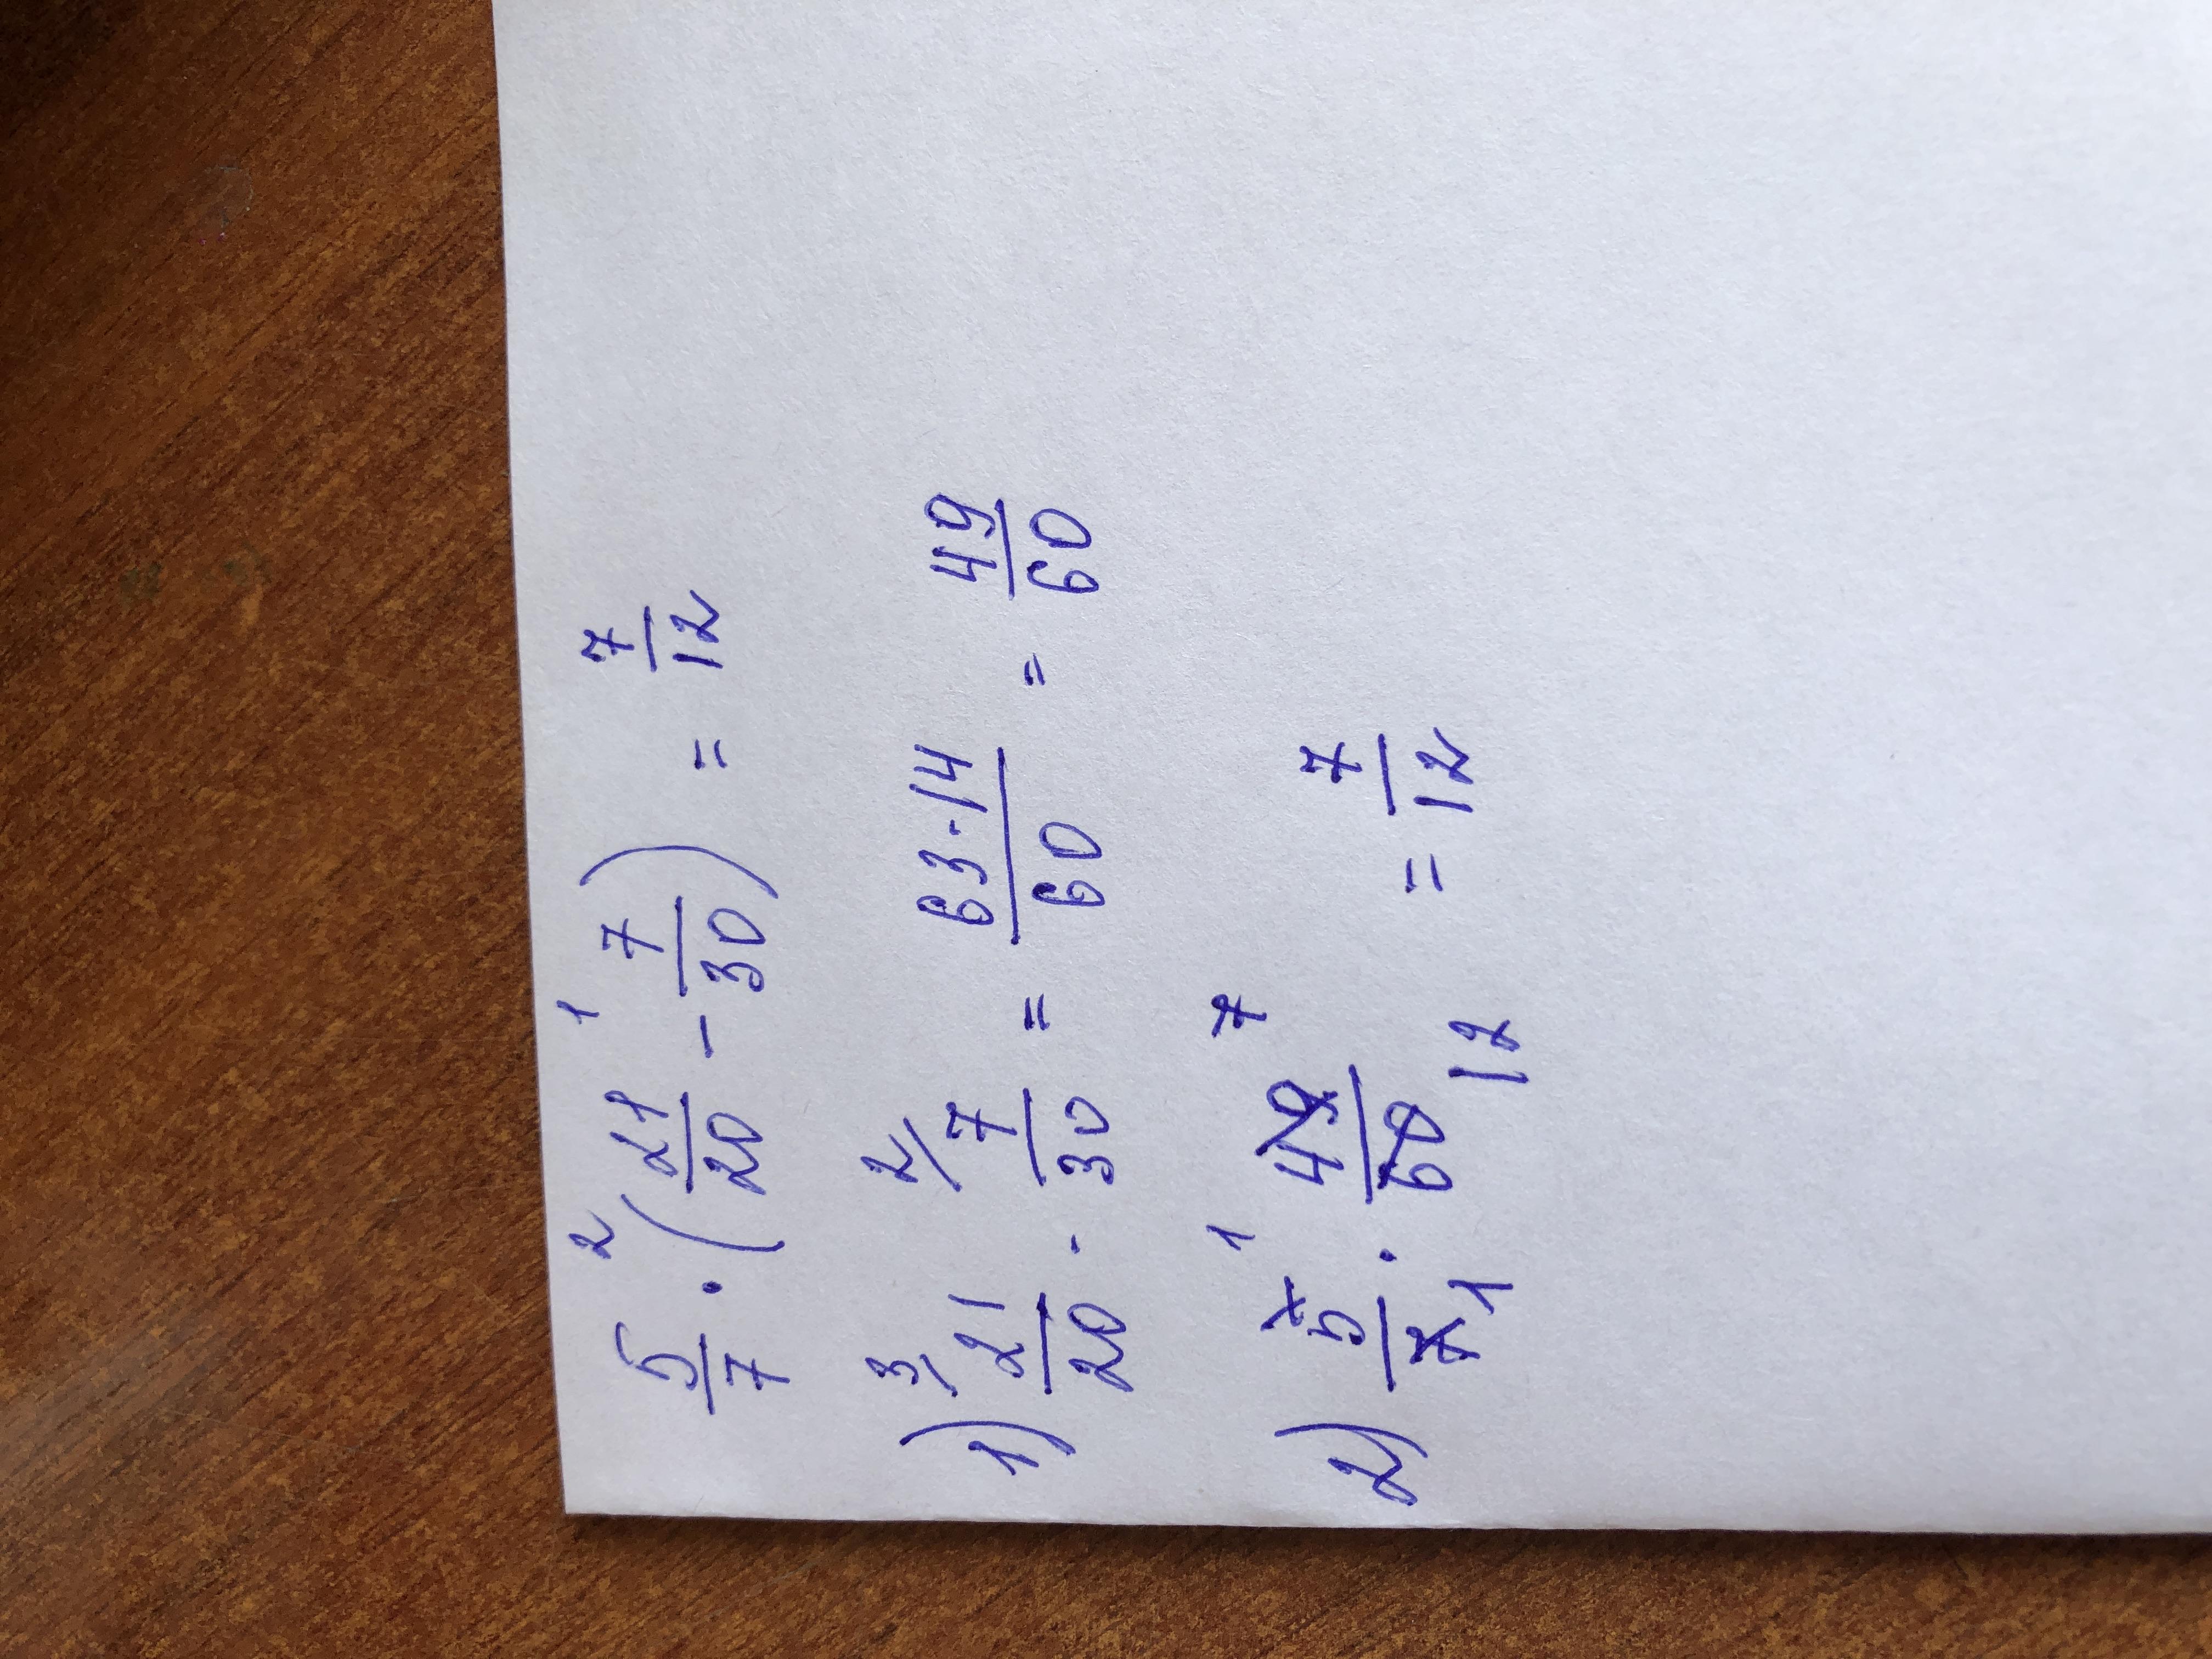 2 1
5/7 · (21/20 - 7/30) = 7/12
1) 3/ 21/20 - 2/ 7/30 = 63-14/60 = 49/60
2) 5/7 1 1 · 49/60 7 12 = 7/12